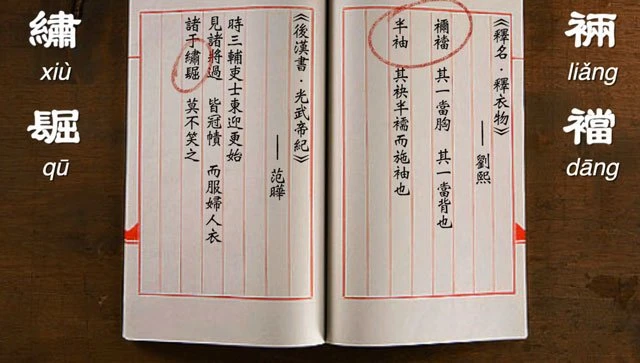 裲
liǎng
襠
dāng
《釋名·釋衣物》
——劉熙
禰襠 其一當胸 其一當背也
半袖 其袂半襦而施袖也
《後漢書·光武帝紀》
——范曄
時三輔吏士東迎更始
見諸將過 皆冠幘 而服婦人衣
諸于繡镼 莫不笑之
繡
xiù
镼
qū